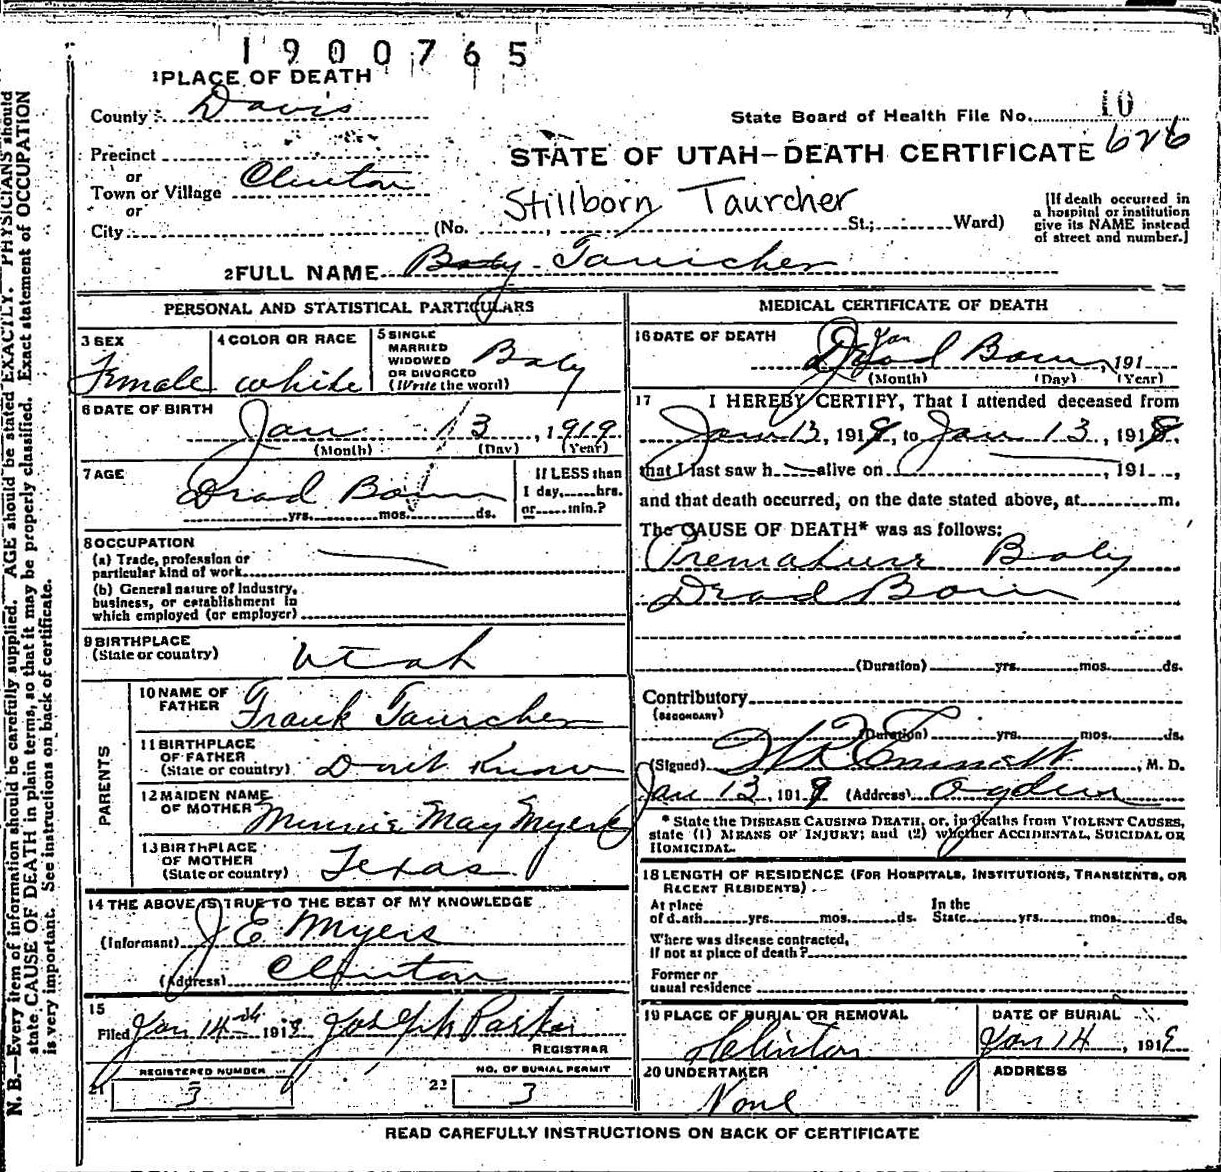 1900765
1 PLACE OF DEATH
County Davis
State Board of Health File No. 10
626
Precinct
or
Town or Village Clinton
or
City
STATE OF UTAH—DEATH CERTIFICATE
Stillborn Taurcher
(No. , St.; Ward)
[If death occurred in
a hospital or institution
give its NAME instead
of street and number.]
2 FULL NAME Baby Taurcher
PERSONAL AND STATISTICAL PARTICULARS
3 SEX
Female
4 COLOR OR RACE
white
5 SINGLE
MARRIED
WIDOWED
OR DIVORCED
(Write the word)
Baby
6 DATE OF BIRTH
Jan 13, 1919
(Month) (Day) (Year)
7 AGE
Dead Born
yrs. mos. ds.
If LESS than
1 day, hrs.
or min.?
8 OCCUPATION
(a) Trade, profession or
particular kind of work
(b) General nature of industry,
business, or establishment in
which employed (or employer)
9 BIRTHPLACE
(State or country)
Utah
PARENTS
10 NAME OF
FATHER
Frank Taurcher
11 BIRTHPLACE
OF FATHER
(State or country)
Dont Know
12 MAIDEN NAME
OF MOTHER
Minnie May Myers
13 BIRTHPLACE
OF MOTHER
(State or country)
Texas
14 THE ABOVE IS TRUE TO THE BEST OF MY KNOWLEDGE
(Informant) J E Myers
(Address) Clinton
15
Filed Jan 14th 1919 Joseph Parker
REGISTRAR
REGISTERED NUMBER
21 3
NO. OF BURIAL PERMIT
22 3
MEDICAL CERTIFICATE OF DEATH
16 DATE OF DEATH
Jan
Dead Born, 191
(Month) (Day) (Year)
17 I HEREBY CERTIFY, That I attended deceased from
Jan 13, 1919, to Jan 13, 1919.
that I last saw h alive on , 191 ,
and that death occurred, on the date stated above, at m.
The CAUSE OF DEATH* was as follows:
Premature Baby
Dead Born
(Duration) yrs. mos. ds.
Contributory
(SECONDARY)
(Duration) yrs. mos. ds.
(Signed) Emmett, M. D.
Jan 13, 1919 (Address) Ogden
* State the DISEASE CAUSING DEATH, or, in deaths from VIOLENT CAUSES,
state (1) MEANS OF INJURY; and (2) whether ACCIDENTAL, SUICIDAL OR
HOMICIDAL.
18 LENGTH OF RESIDENCE (FOR HOSPITALS, INSTITUTIONS, TRANSIENTS, OR
RECENT RESIDENTS)
At place
of death yrs. mos. ds.
In the
State yrs. mos. ds.
Where was disease contracted,
If not at place of death?
Former or
usual residence
19 PLACE OF BURIAL OR REMOVAL
Clinton
DATE OF BURIAL
Jan 14, 1919
20 UNDERTAKER
None
ADDRESS
READ CAREFULLY INSTRUCTIONS ON BACK OF CERTIFICATE
N. B.—Every item of information should be carefully supplied. AGE should be stated EXACTLY. PHYSICIANS should
state CAUSE OF DEATH in plain terms, so that it may be properly classified. Exact statement of OCCUPATION
is very important. See instructions on back of certificate.